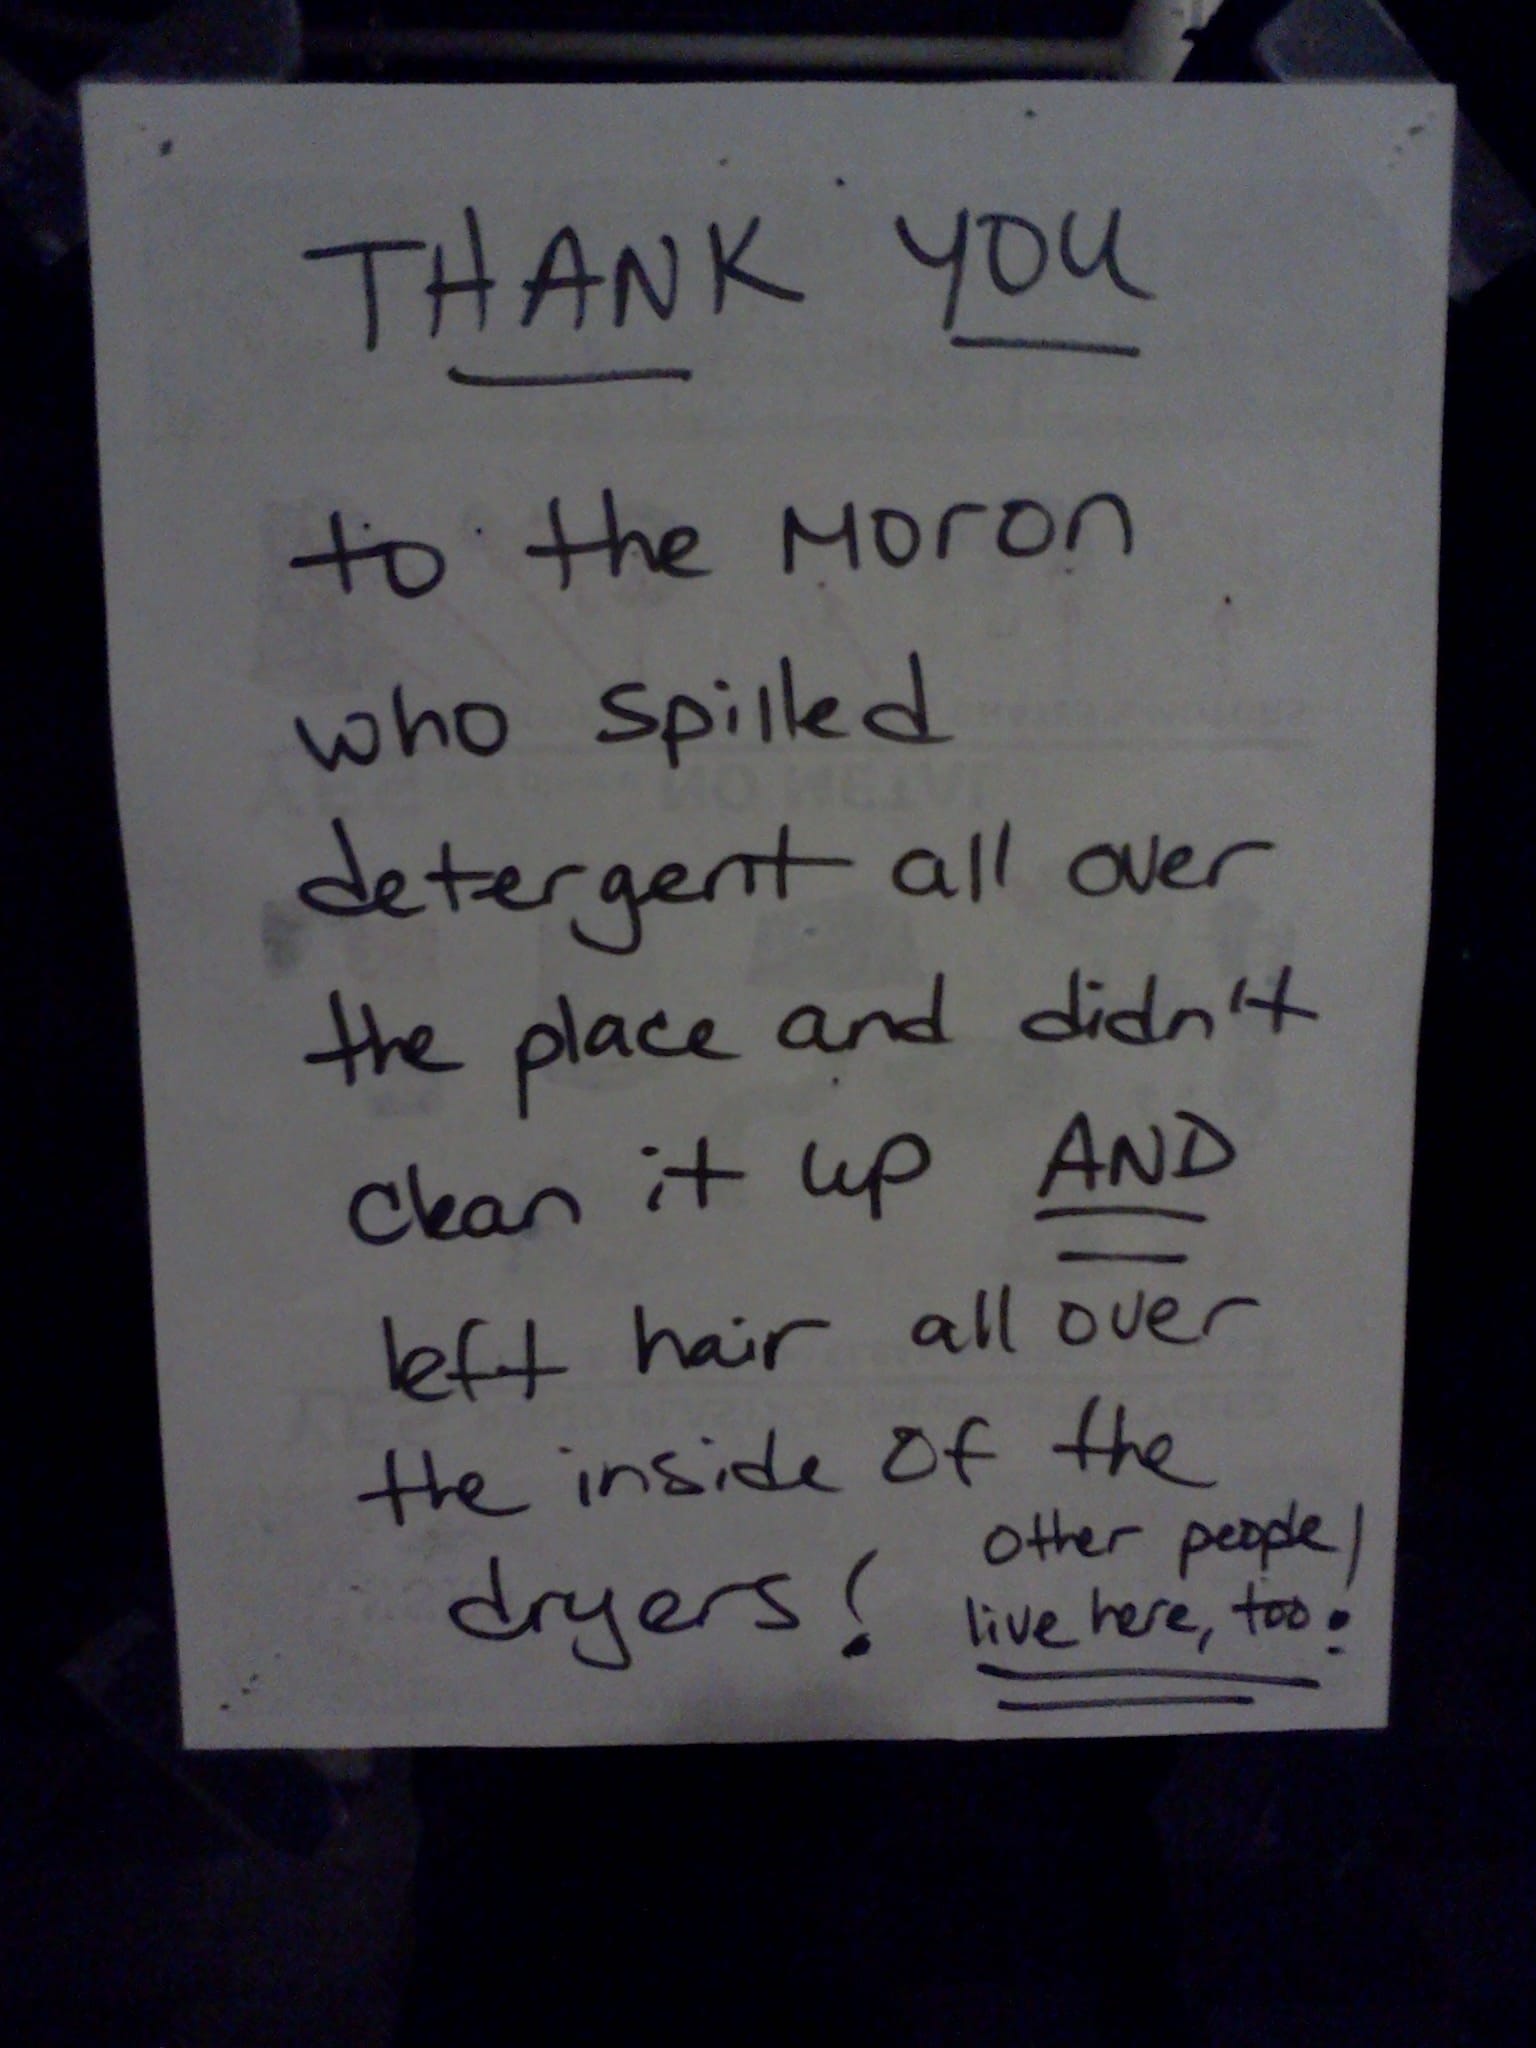 THANK YOU
to the Moron
who spilled
detergent all over
the place and didn't
clean it up AND
left hair all over
the inside of the
dryers!
other people
live here, too!